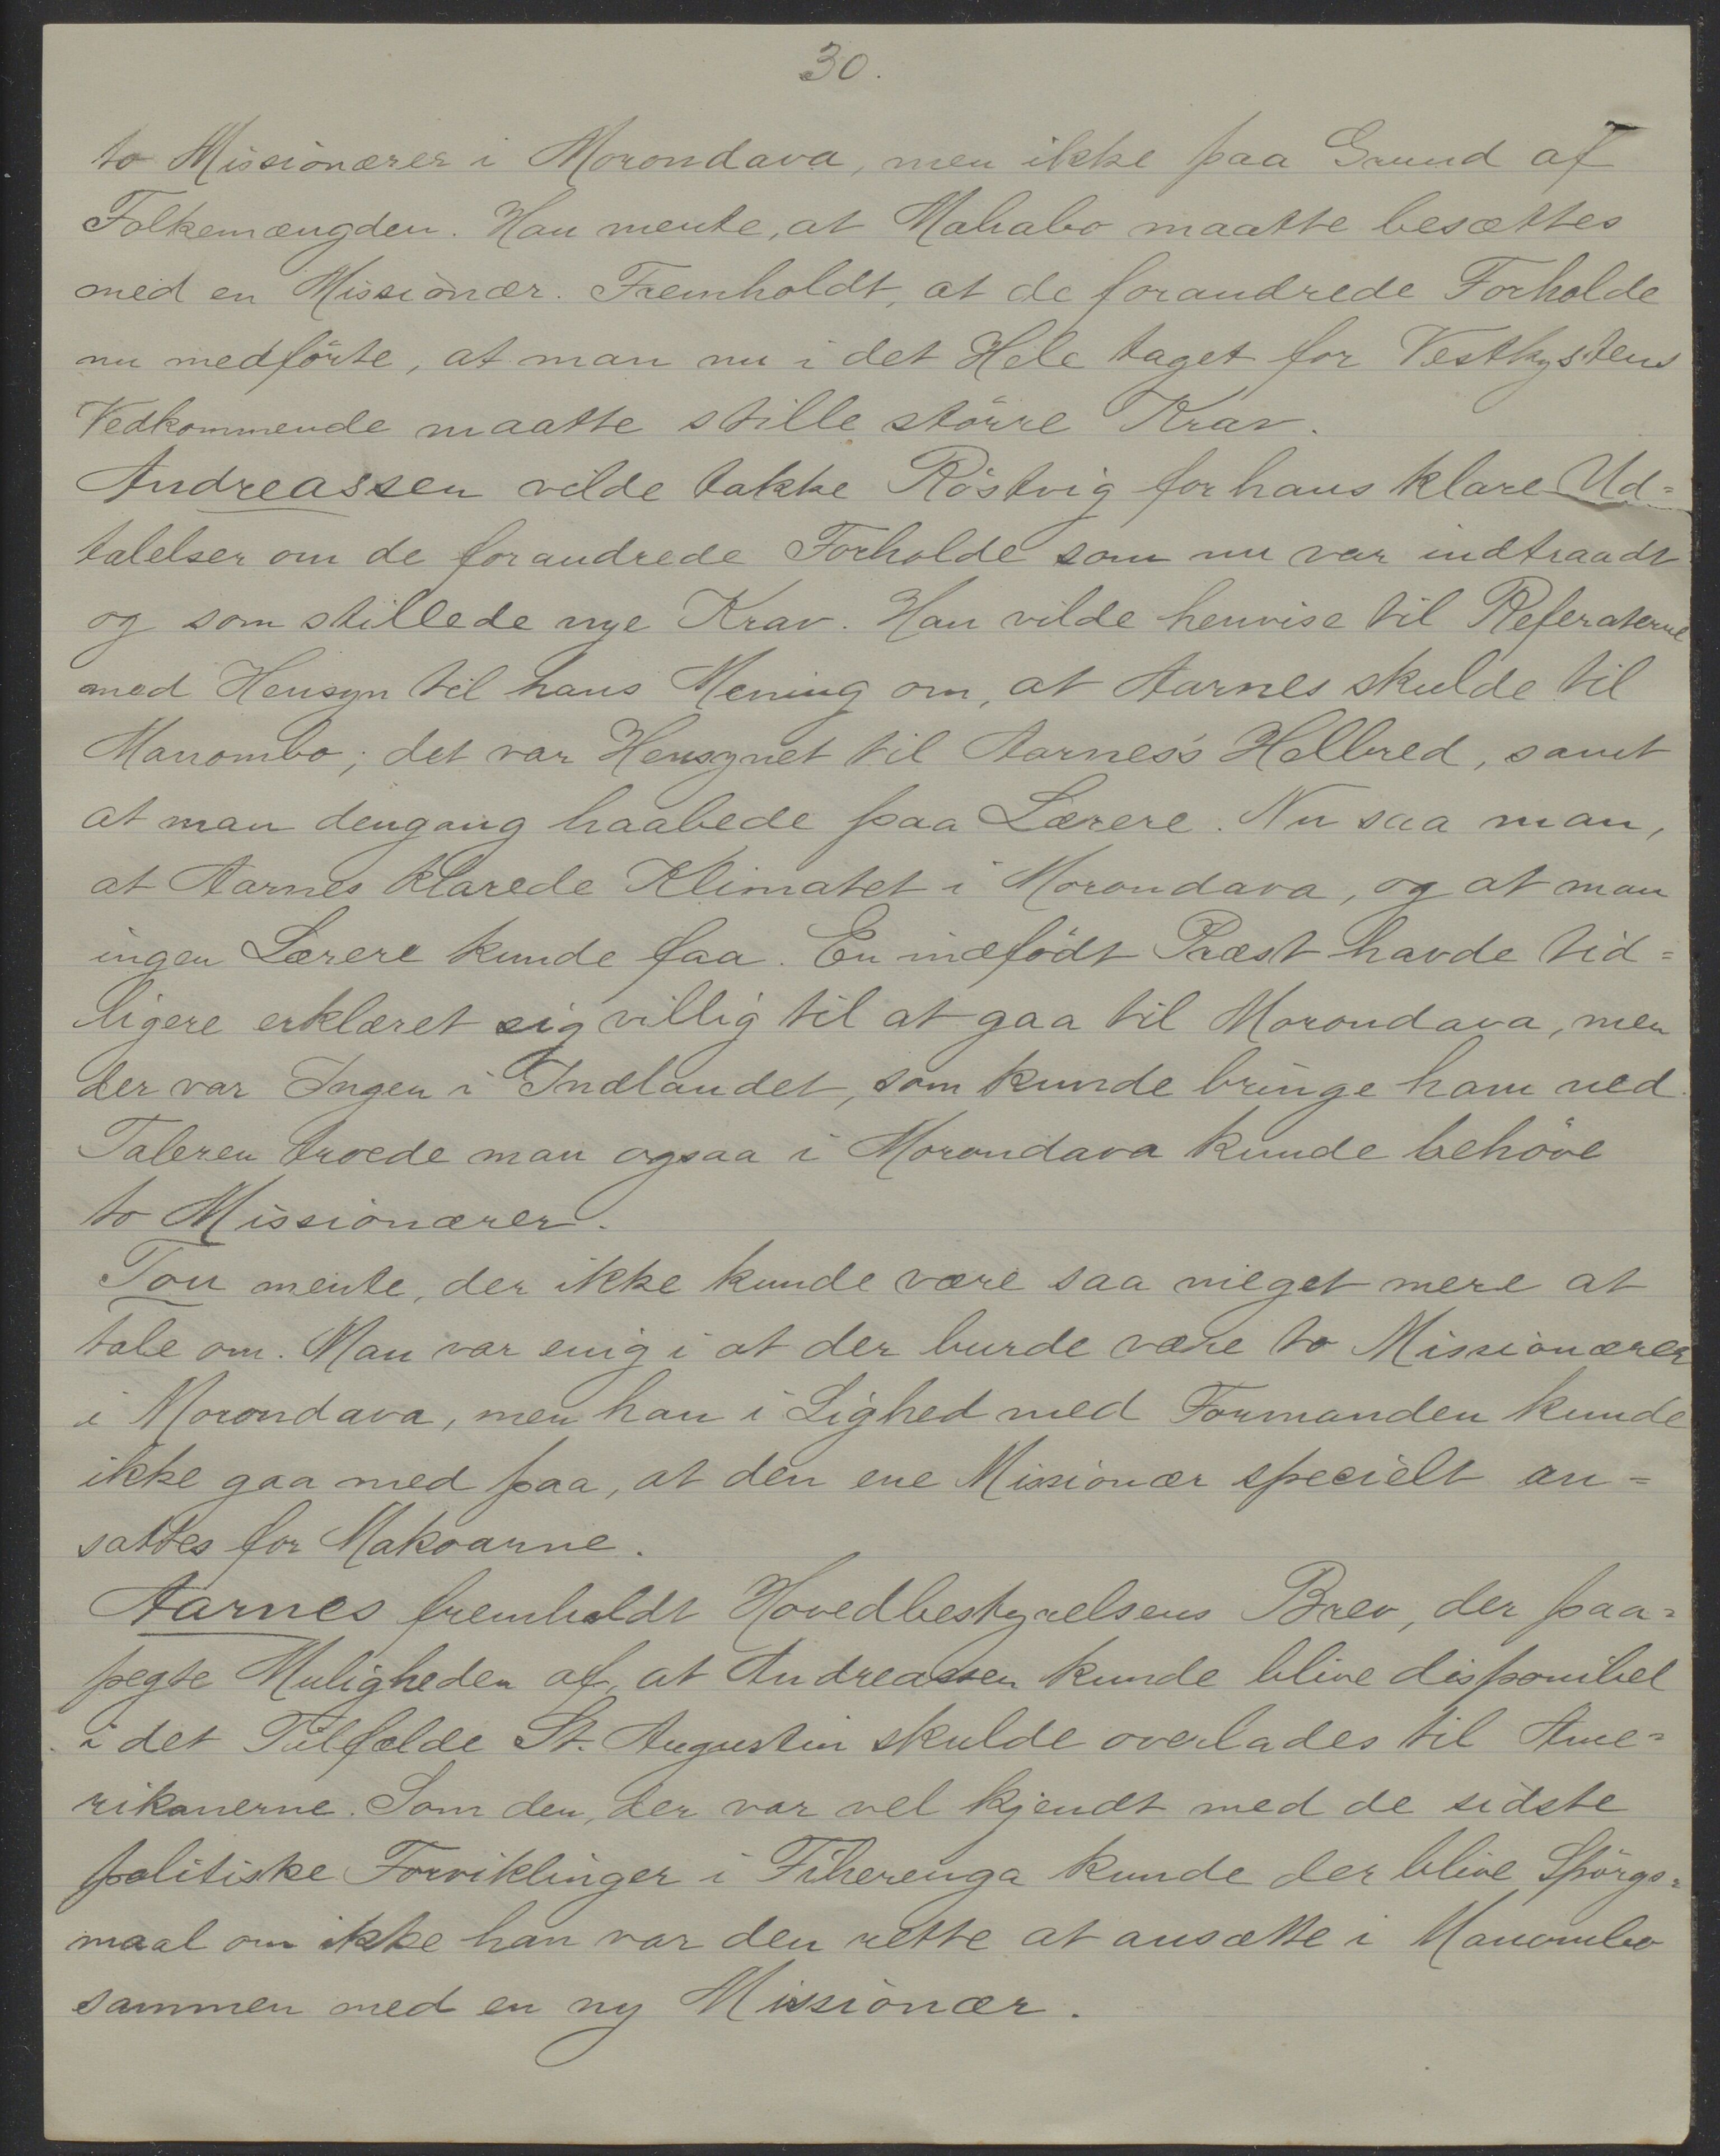 30.
to Missionærer i Morondava, men ikke paa Grund af
Folkemængden. Han mente, at Mahabo maatte besættes
med en Missionær. Fremholdt, at de forandrede Forholde
nu medförte, at man nu i det Hele taget for Vestkystens
Vedkommende maatte stille större Krav.
Andreassen vilde takke Röstvig for hans klare Ud=
talelser om de forandrede Forholde som nu var indtraadt
og som stillede nye Krav. Han vilde henvise til Referaterne
med Hensyn til hans Mening om, at Aarnes skulde til
Manombo; det var Hensynet til Aarnes's Helbred, samt
at man dengang haabede paa Lærere. Nu saa man,
at Aarnes klarede Klimatet i Morondava, og at man
ingen Lærere kunde faa. En indfödt Præst havde tid=
ligere erklæret sig villig til at gaa til Morondava, men
der var Ingen i Indlandet, som kunde bringe ham ned.
Taleren troede man ogsaa i Morondava kunde behöve
to Missionærer.
Tou mente, der ikke kunde være saa meget mere at
tale om. Man var enig i at der burde være to Missionærer
i Morondava, men han i Lighed med Formanden kunde
ikke gaa med paa, at den ene Missionær specielt an=
sattes for Makoarne.
Aarnes fremholdt Hovedbestyrelsens Brev, der paa=
pegte Muligheden af, at Andreassen kunde blive disponibel
i det Tilfælde St. Augustin skulde overlades til Ame=
rikanerne. Som den, der var vel kjendt med de sidste
politiske Forviklinger i Fiherenga kunde der blive Spörgs=
maal om ikke han var den rette at ansætte i Manombo
sammen med en ny Missionær.